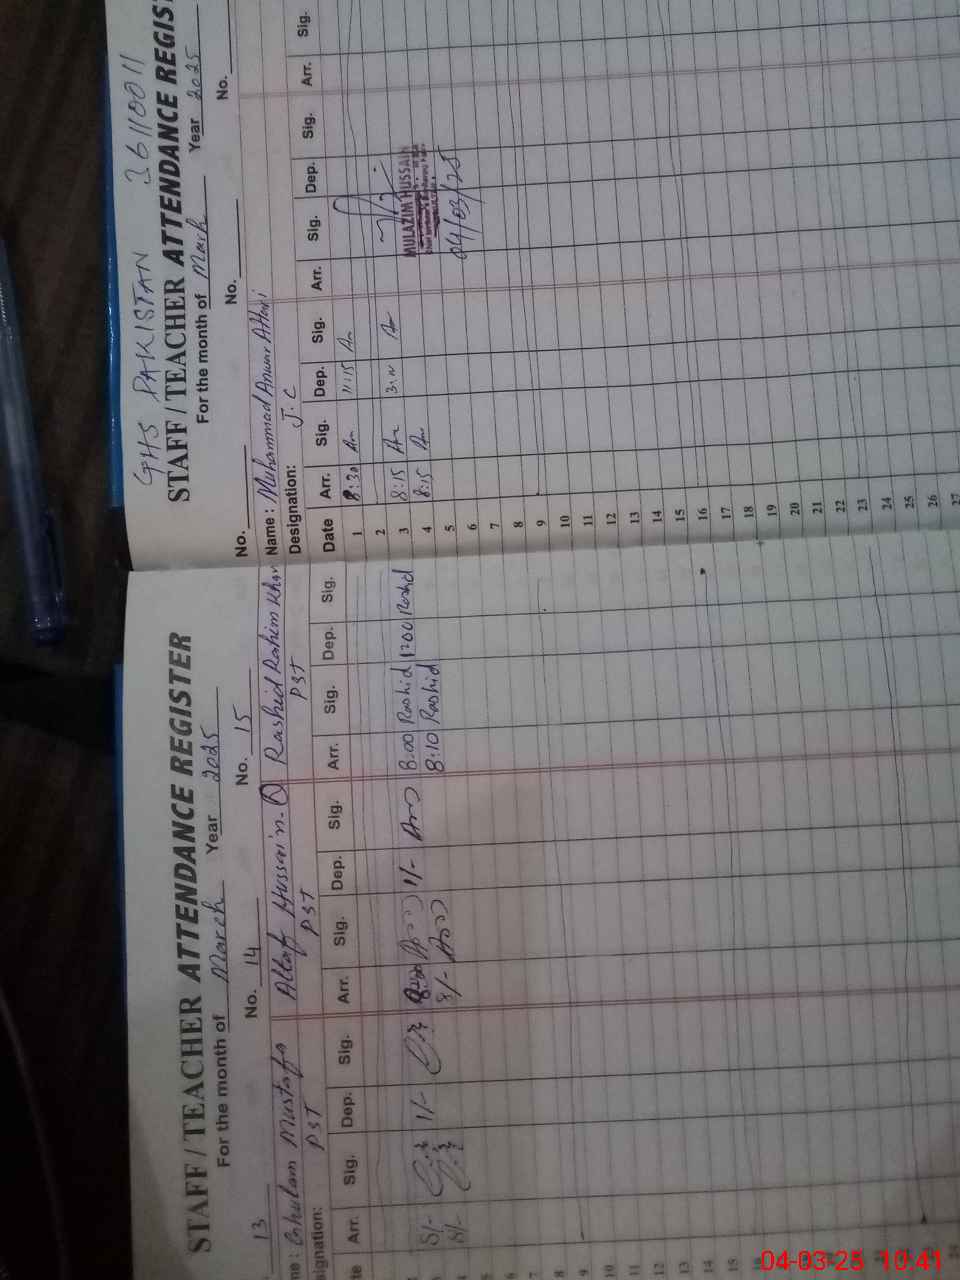 STAFF / TEACHER ATTENDANCE REGISTER
For the month of March Year 2025
13 No. 14 No. 15
me: Ghulam Mustafa Altaf Hussain. Q Rashid Rahim Khan
signation: PST PST PST
te Arr. Sig. Dep. Sig. Arr. Sig. Dep. Sig. Arr. Sig. Dep. Sig.
8/- 1/- 8:00 1/- 8:00 Rashid 1200 Rashid
8/- 8/- 8:10 Rashid
4
5
6
7
8
9
10
11
12
13
14
15
16
17
18
19
20
21
22
24
GHS PAKISTAN 36110011
STAFF / TEACHER ATTENDANCE REGIST
For the month of March Year 2025
No. No. No.
Name: Muhammad Anwar Attari
Designation: J.C
Date Arr. Sig. Dep. Sig. Arr. Sig. Dep. Sig. Arr. Sig.
1 8:30 11:15
2
3 8:15
4 8:15
MULAZIM HUSSAIN
04/03/25
5
6
7
8
9
10
11
12
13
14
15
16
17
18
19
20
21
22
23
24
25
26
27
04-03-25 10:41